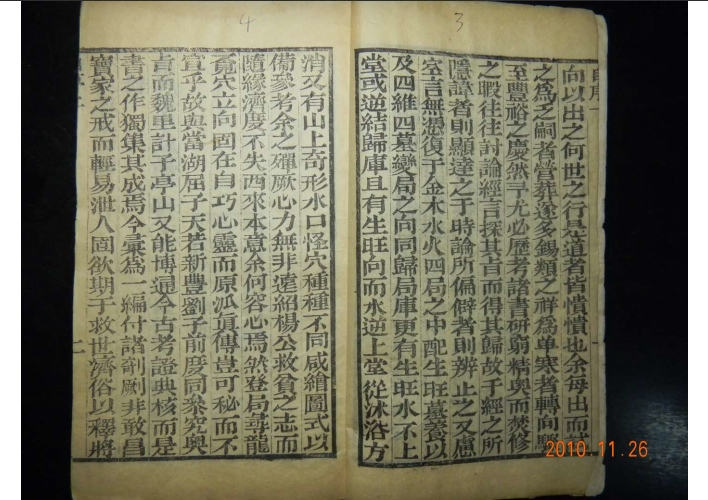 3
向以出之何世之行是道者皆憒憒也余每出而
之為之嗣者營葬遂多錫類之祥為單寒者轉向
至豐裕之慶然早尤必歷考諸書研窮精奧而焚修
之暇往往討論經言探其旨而得其歸故于經之所
隱諱者則顯達之于時論所偏僻者則辨止之又慮
室言無憑復于金木水火四局之中配生旺墓養以
及四維四墓變局之向同歸局庫更有生旺水不上
堂或逆結歸庫且有生旺向而水逆上堂從沐浴方
4
消又有山上奇形水口怪穴種種不同咸繪圖式以
備參考余之殫厥心力無非遠紹楊公救貧之志而
隨緣濟度不失西來本意余何容心焉然登局尋龍
覓穴立向固在自巧心靈而原派真傳豈可秘而不
宣乎故與當湖屈子天若新豐劉子前慶同參究與
旨而魏里計子亭山又能博通今古考證典核而是
書之作獨集其成焉今彙為一編付諸剞劂非敢昌
寶家之戒而輕易泄人固欲期于救世濟俗以釋將
二
2010 11.26